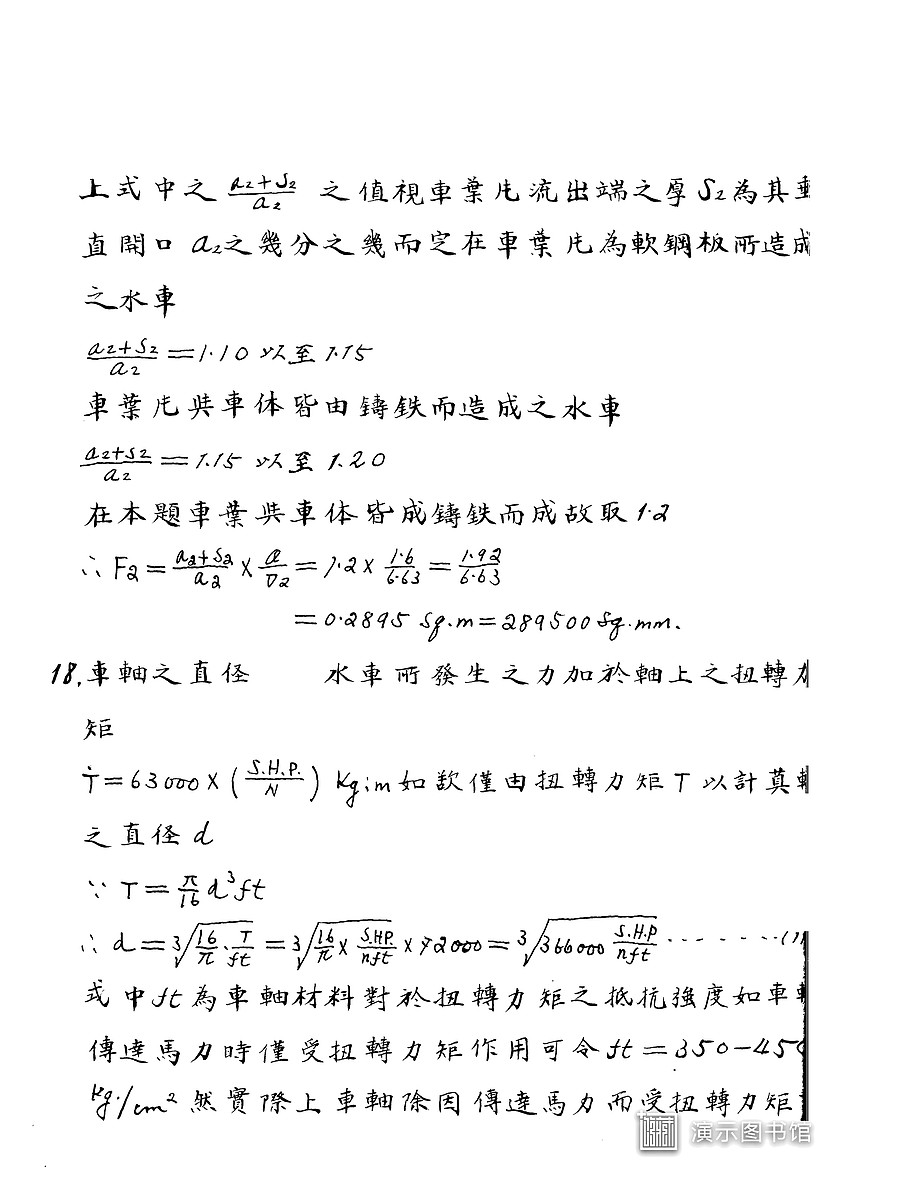 上式中之 (a2+S2)/a2 之值視車葉片流出端之厚S2為其垂
直開口 a2之幾分之幾而定在車葉片為軟鋼板所造成
之水車
(a2+S2)/a2 =1.10 以至1.15
車葉片與車体皆由鑄鉄而造成之水車
(a2+S2)/a2 =1.15 以至 1.20
在本題車葉與車体皆成鑄鉄而成故取1.2
∴ F2 = (a2+S2)/a2 × Q/v2 = 1.2 × 1.6/6.63 = 1.92/6.63
=0.2895 Sq.m=289500 Sq.mm.
18.車軸之直径 水車所發生之力加於軸上之扭轉力
矩
T=63000×(S.H.P./N) Kg:m如欵僅由扭轉力矩T以計其軸
之直径d
∵ T= π/16 d³ft
∴ d= ³√(16/π · T/ft) = ³√(16/π × S.H.P/nft) ×72000= ³√(366000 S.H.P/nft) ------(1)
式中ft為車軸材料對於扭轉力矩之抵抗強度如車軸
傳達馬力時僅受扭轉力矩作用可令ft=350-450
Kg./cm² 然實際上車軸除因傳達馬力而受扭轉力矩
演示图书馆